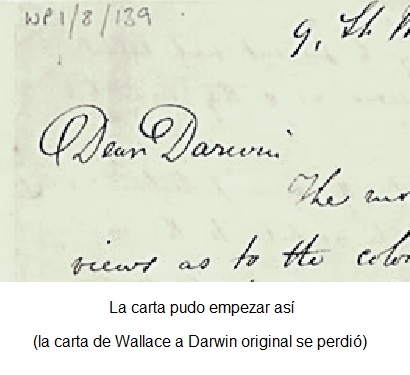 WP1/8/139
9, St.
Dear Darwin
The
views as to the
La carta pudo empezar así
(la carta de Wallace a Darwin original se perdió)